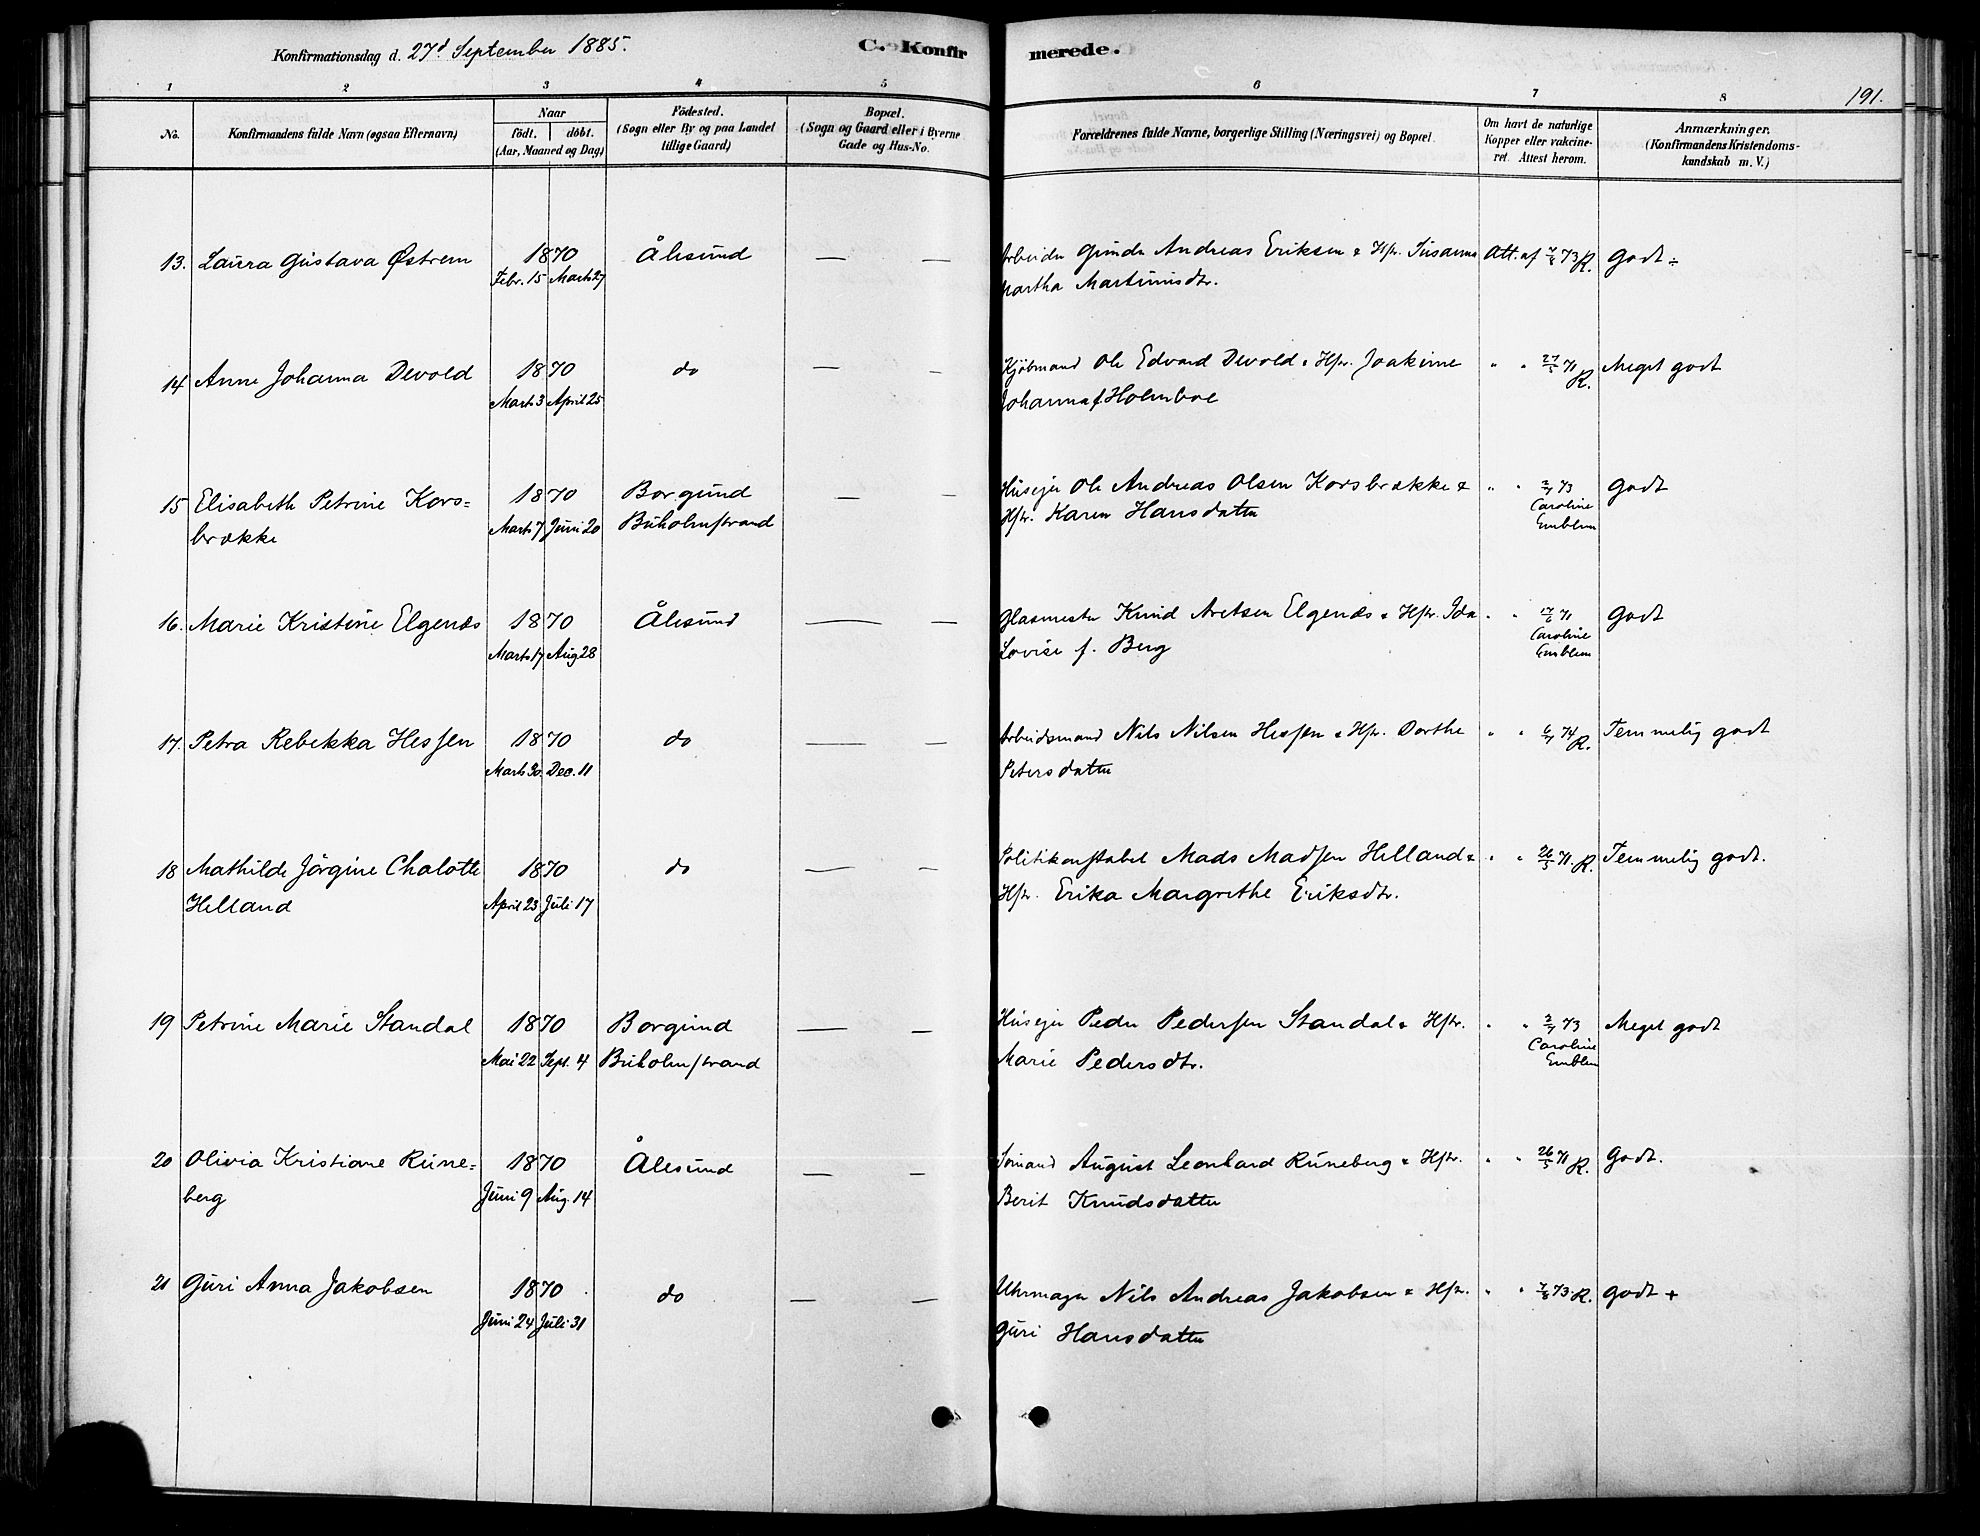 Konfirmationsdag d. 27d September 1885.
C. Konfirmerede.
191.
1 2 3 4 5 6 7 8
No.
Konfirmandens fulde Navn (ogsaa Efternavn)
Naar
födt. döbt.
(Aar, Maaned og Dag)
Födested.
(Sogn eller By og paa Landet
tillige Gaard)
Bopæl.
(Sogn og Gaard eller i Byerne
Gade og Hus-No.
Forældrenes fulde Navne, borgerlige Stilling (Næringsvei) og Bopæl.
Om havt de naturlige
Kopper eller vakcine-
ret. Attest herom.
Anmærkninger.
(Konfirmandens Kristendoms-
kundskab m. V.)
13. Laura Gustava Østrem 1870 Ålesund — — Arbeider Gunder Andreas Eriksen & Hstr. Susanna Att. af 7/8 73 R. Godt ÷
Febr. 15 Marts 27 Martha Martinusdtr.
14 Anne Johanna Devold 1870 do — — Kjöbmand Ole Edvard Devold & Hstr. Joakime " " 27/5 71 R. Meget godt
Marts 3 April 25 Johanna f. Holmboe
15 Elisabeth Petrine Kors= 1870 Borgund — — Husejer Ole Andreas Olsen Korsbrække & " " 2/7 73 Godt
brække Marts 7 Juni 20 Buholmstrand Hstr. Karen Hansdatter Caroline
Emblem
16. Marie Kristine Elgenæs 1870 Ålesund — — Glasmester Knud Aretsen Elgenæs & Hstr. Ida " " 17/6 71 Godt
Marts 17 Aug 28 Lovise f. Berg Caroline
Emblem
17. Petra Rebekka Hessen 1870 do — — Arbeidsmand Nils Nilsen Hessen & Hstr. Dorthe " " 6/7 74 R. Temmelig godt
Marts 30. Dec. 11 Petersdatter
18 Mathilde Jörgine Chalotte 1870 do — — Politikonstabel Mads Madsen Helland & " " 26/5 71. R. Temmelig godt.
Helland April 23 Juli 17 Hstr. Erika Margrethe Eriksdtr.
19 Petrine Marie Standal 1870 Borgund — — Husejer Peder Pedersen Standal & Hstr. " " 2/7 73 Meget godt
Mai 22 Sept. 4 Buholmstrand Marie Pedersdtr. Caroline
Emblem
20 Olivia Kristiane Rune= 1870 Ålesund — — Sömand August Leonhard Runeberg & Hstr. " " 26/5 71 R. Godt.
berg Juni 9 Aug. 14 Berit Knudsdatter
21 Guri Anna Jakobsen 1870 do — — Uhrmager Nils Andreas Jakobsen & Hstr. " " 7/8 73. R. Godt +
Juni 24 Juli 31 Guri Hansdatter